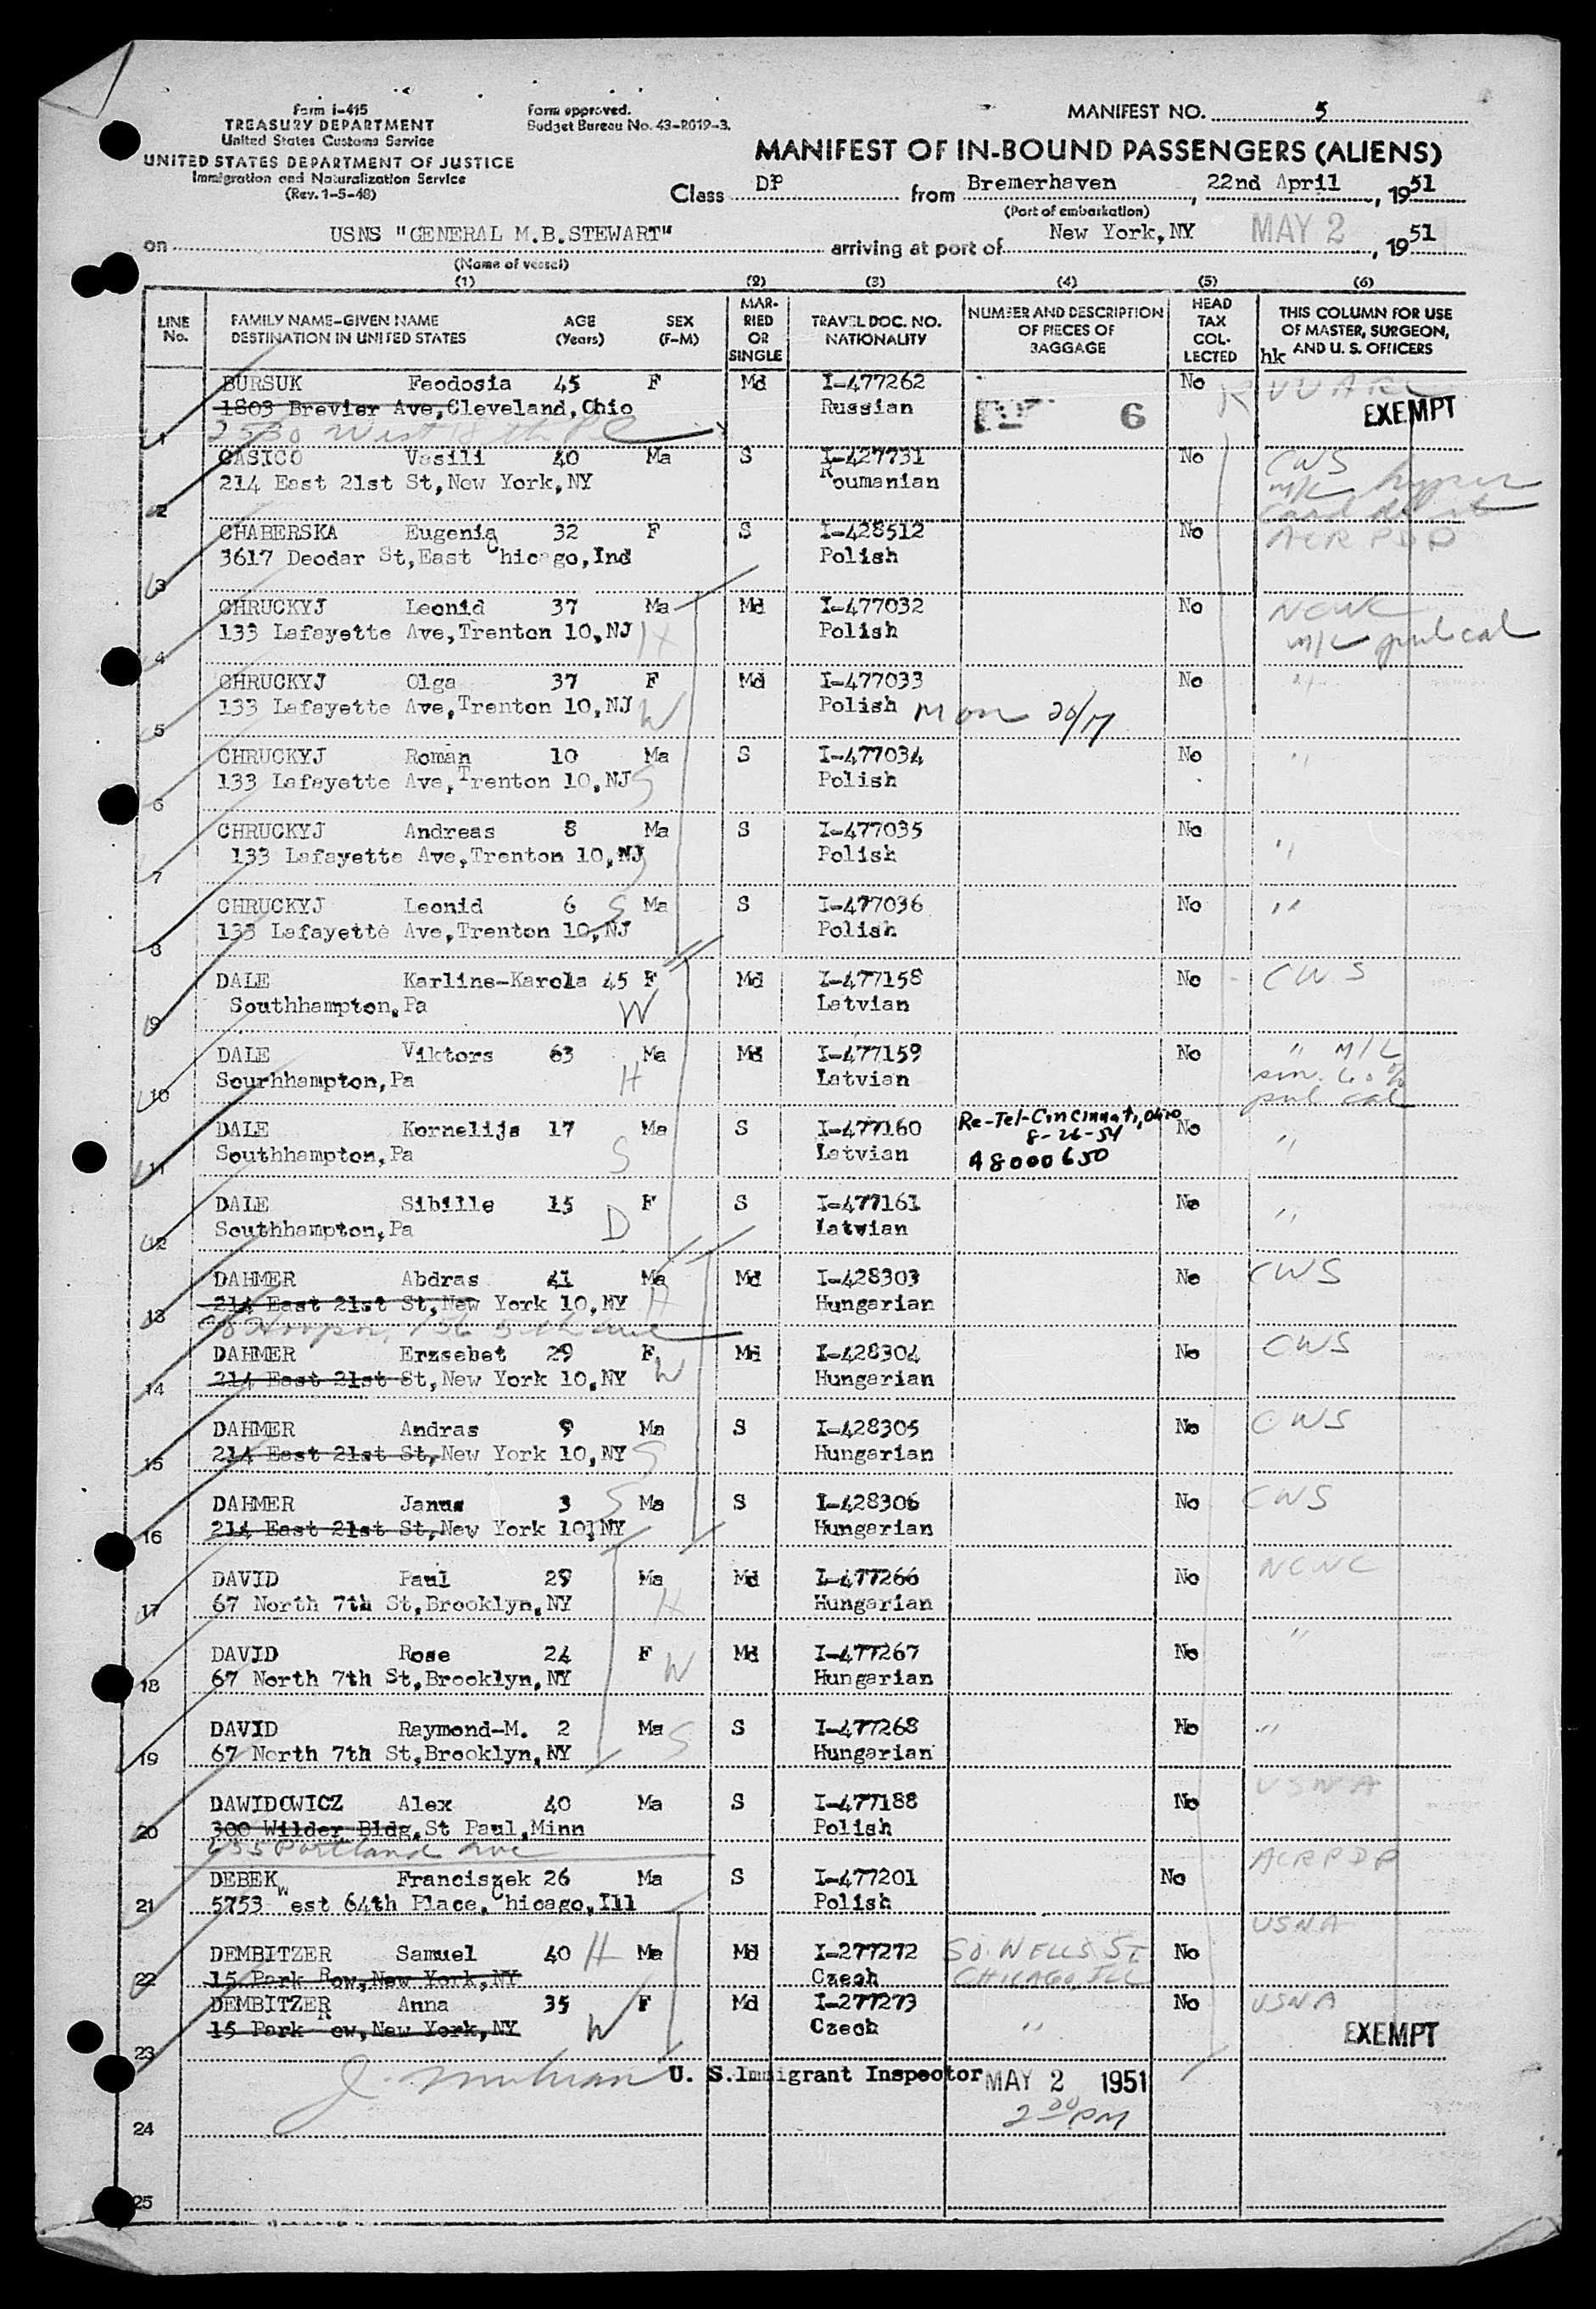 Form I-415
TREASURY DEPARTMENT
United States Customs Service
UNITED STATES DEPARTMENT OF JUSTICE
Immigration and Naturalization Service
(Rev. 1-5-48)
Form approved.
Budget Bureau No. 43-R019-3.
MANIFEST NO. 5
MANIFEST OF IN-BOUND PASSENGERS (ALIENS)
Class DP from Bremerhaven, 22nd April, 1951
(Port of embarkation)
on USNS "GENERAL M.B.STEWART" arriving at port of New York,NY MAY 2, 1951
(Name of vessel)
(1) (2) (3) (4) (5) (6)
LINE No. FAMILY NAME-GIVEN NAME DESTINATION IN UNITED STATES AGE (Years) SEX (F-M) MARRIED OR SINGLE TRAVEL DOC. NO. NATIONALITY NUMBER AND DESCRIPTION OF PIECES OF BAGGAGE HEAD TAX COLLECTED THIS COLUMN FOR USE OF MASTER, SURGEON, AND U. S. OFFICERS
hk
BURSUK Feodosia 45 F Md I-477262 No
1803 Brevier Ave,Cleveland,Ohio Russian 6 EXEMPT
1 2530 West 18th Pl
CASICO Vasili 40 Ma S I-427731 No CWS
214 East 21st St,New York,NY Roumanian M/L
2
CHABERSKA Eugenia 32 F S I-428512 No ACRPDP
3617 Deodar St,East Chicago,Ind Polish
3
CHRUCKYJ Leonid 37 Ma Md I-477032 No NCWC
133 Lafayette Ave,Trenton 10,NJ H Polish M/L pul cal
4
CHRUCKYJ Olga 37 F Md I-477033 No "
133 Lafayette Ave,Trenton 10,NJ W Polish
5
CHRUCKYJ Roman 10 Ma S I-477034 No "
133 Lafayette Ave,Trenton 10,NJ S Polish
6
CHRUCKYJ Andreas 8 Ma S I-477035 No "
133 Lafayette Ave,Trenton 10,NJ S Polish
7
CHRUCKYJ Leonid 6 S Ma S I-477036 No "
133 Lafayette Ave,Trenton 10,NJ Polish
8
DALE Karline-Karola 45 F Md I-477158 No CWS
Southhampton,Pa W Latvian
9
DALE Viktors 63 Ma Md I-477159 No " M/L
Sourhhampton,Pa H Latvian
10 pul cal
DALE Kornelijs 17 Ma S I-477160 Re-Tel-Cincinnati,Ohio 8-26-54 No "
Southhampton,Pa S Latvian A8000650
11
DALE Sibille 15 F S I-477161 No "
Southhampton,Pa D Latvian
12
DAHMER Abdras 41 Ma Md I-428303 No CWS
214 East 21st St,New York 10,NY H Hungarian
13 156 5th Ave
DAHMER Erzsebet 29 F Md I-428304 No CWS
214 East 21st St,New York 10,NY W Hungarian
14
DAHMER Andras 9 Ma S I-428305 No CWS
214 East 21st St,New York 10,NY S Hungarian
15
DAHMER Janus 3 S Ma S I-428306 No CWS
214 East 21st St,New York 10,NY Hungarian
16
DAVID Paul 29 Ma Md I-477266 No NCWC
67 North 7th St,Brooklyn,NY H Hungarian
17
DAVID Rose 24 F Md I-477267 No "
67 North 7th St,Brooklyn,NY W Hungarian
18
DAVID Raymond-M. 2 Ma S I-477268 No "
67 North 7th St,Brooklyn,NY S Hungarian
19
DAWIDOWICZ Alex 40 Ma S I-477188 No USNA
300 Wilder Bldg,St Paul,Minn Polish
20 655 Portland Ave
DEBEK Franciszek 26 Ma S I-477201 No ACRPDP
5753 West 64th Place,Chicago,Ill Polish
21
DEMBITZER Samuel 40 H Ma Md I-277272 SO. WELLS ST No USNA
15 Park Row,New York,NY Czech CHICAGO, ILL
22
DEMBITZER Anna 35 F Md I-277273 No USNA
15 Park Row,New York,NY W Czech " EXEMPT
23
U. S.Immigrant Inspector MAY 2 1951
2 00 PM
24
25